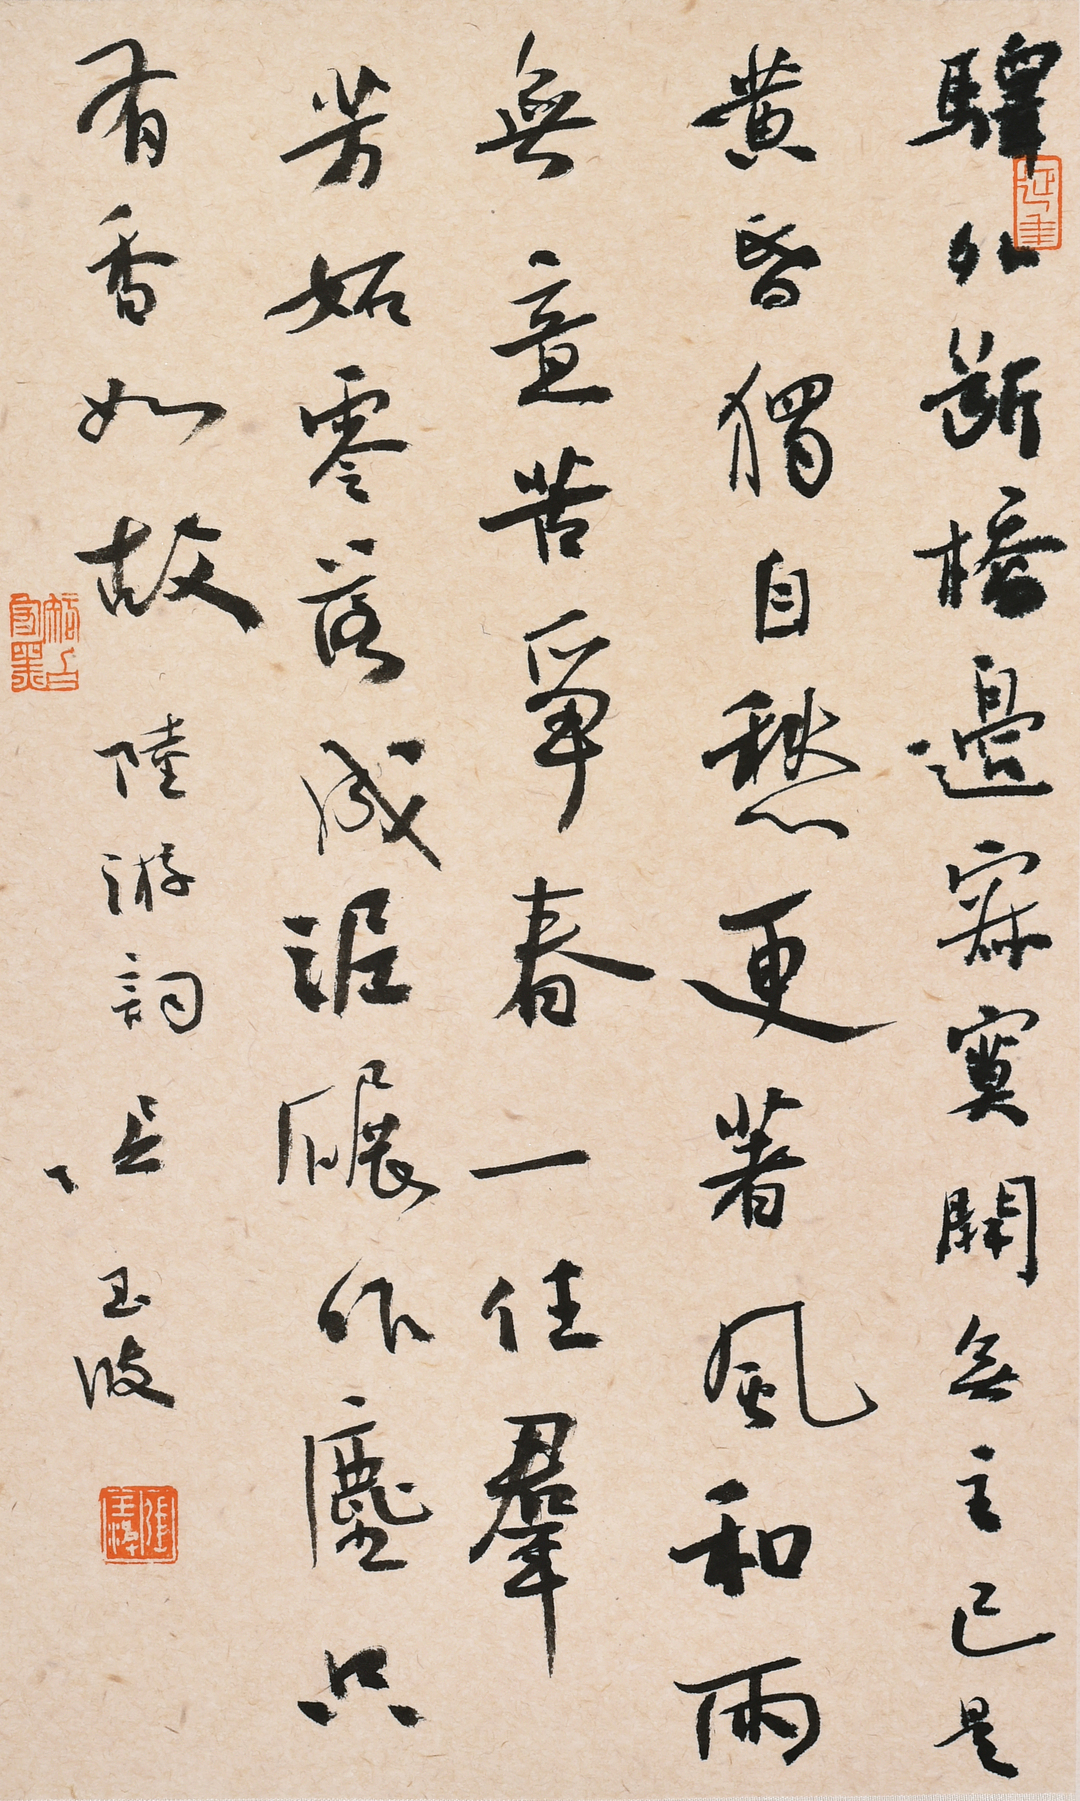 驛外斷橋邊寂寞開無主已是
黃昏獨自愁更著風和雨
無意苦爭春一任羣
芳妬零落成泥碾作塵只
有香如故
陸游詞 張玉波